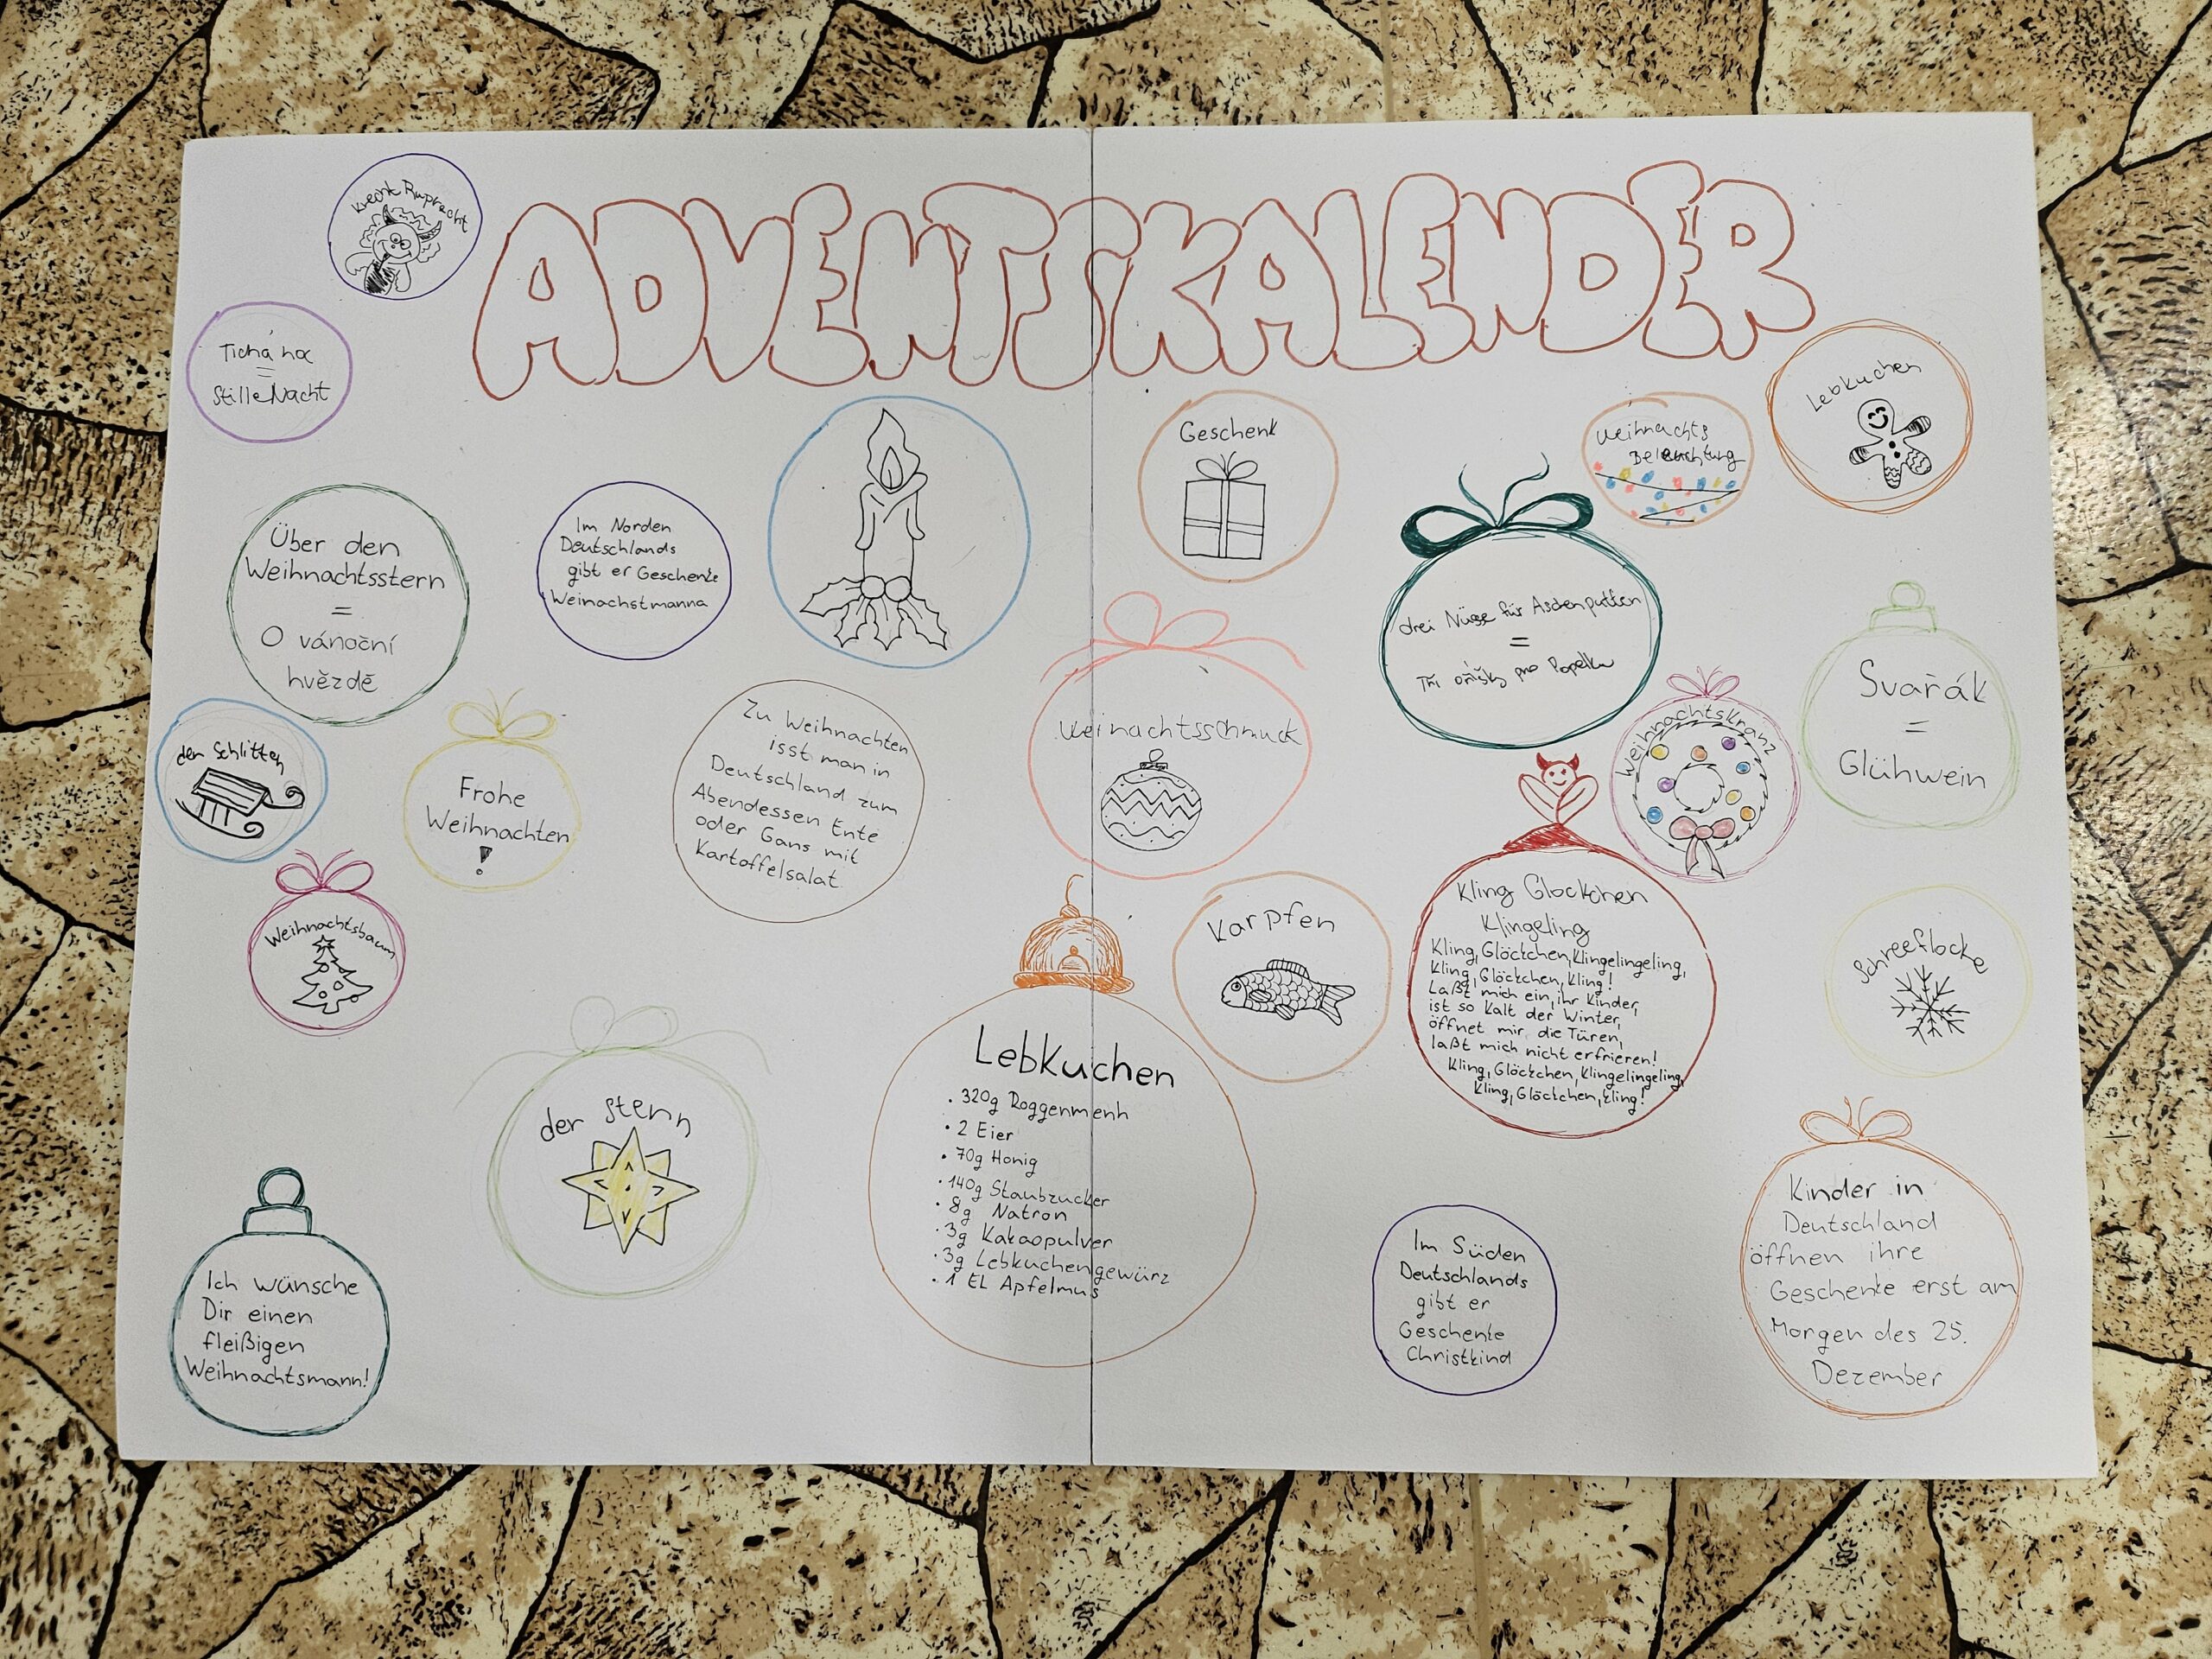 Knecht Ruprecht
ADVENTSKALENDER
Tichá noc
=
Stille Nacht
Geschenk
Weihnachts
Beleuchtung
Lebkuchen
Über den
Weihnachtsstern
=
O vánoční
hvězdě
Im Norden
Deutschlands
gibt er Geschenke
Weinachstmanna
drei Nüsse für Aschenputten
=
Tři oříšky pro Popelku
Svařák
=
Glühwein
der Schlitten
Frohe
Weihnachten
!
Zu Weihnachten
isst man in
Deutschland zum
Abendessen Ente
oder Gans mit
Kartoffelsalat
Weinachtsschmuck
Weihnachtskranz
Weihnachtsbaum
Karpfen
Kling Glockchen
Klingeling
Kling, Glöckchen, Klingelingeling,
Kling, Glöckchen, Kling!
Laßt mich ein, ihr Kinder,
ist so kalt der Winter,
öffnet mir die Türen,
laßt mich nicht erfrieren!
Kling, Glöckchen, Klingelingeling,
Kling, Glöckchen, Kling!
Schneeflocke
der Stern
Lebkuchen
• 320g Roggenmenh
• 2 Eier
• 70g Honig
• 140g Staubzucker
• 8g Natron
• 3g Kakaopulver
• 3g Lebkuchengewürz
• 1 EL Apfelmus
Ich wünsche
Dir einen
fleißigen
Weihnachtsmann!
Im Süden
Deutschlands
gibt er
Geschenke
Christkind
Kinder in
Deutschland
öffnen ihre
Geschenke erst am
Morgen des 25.
Dezember